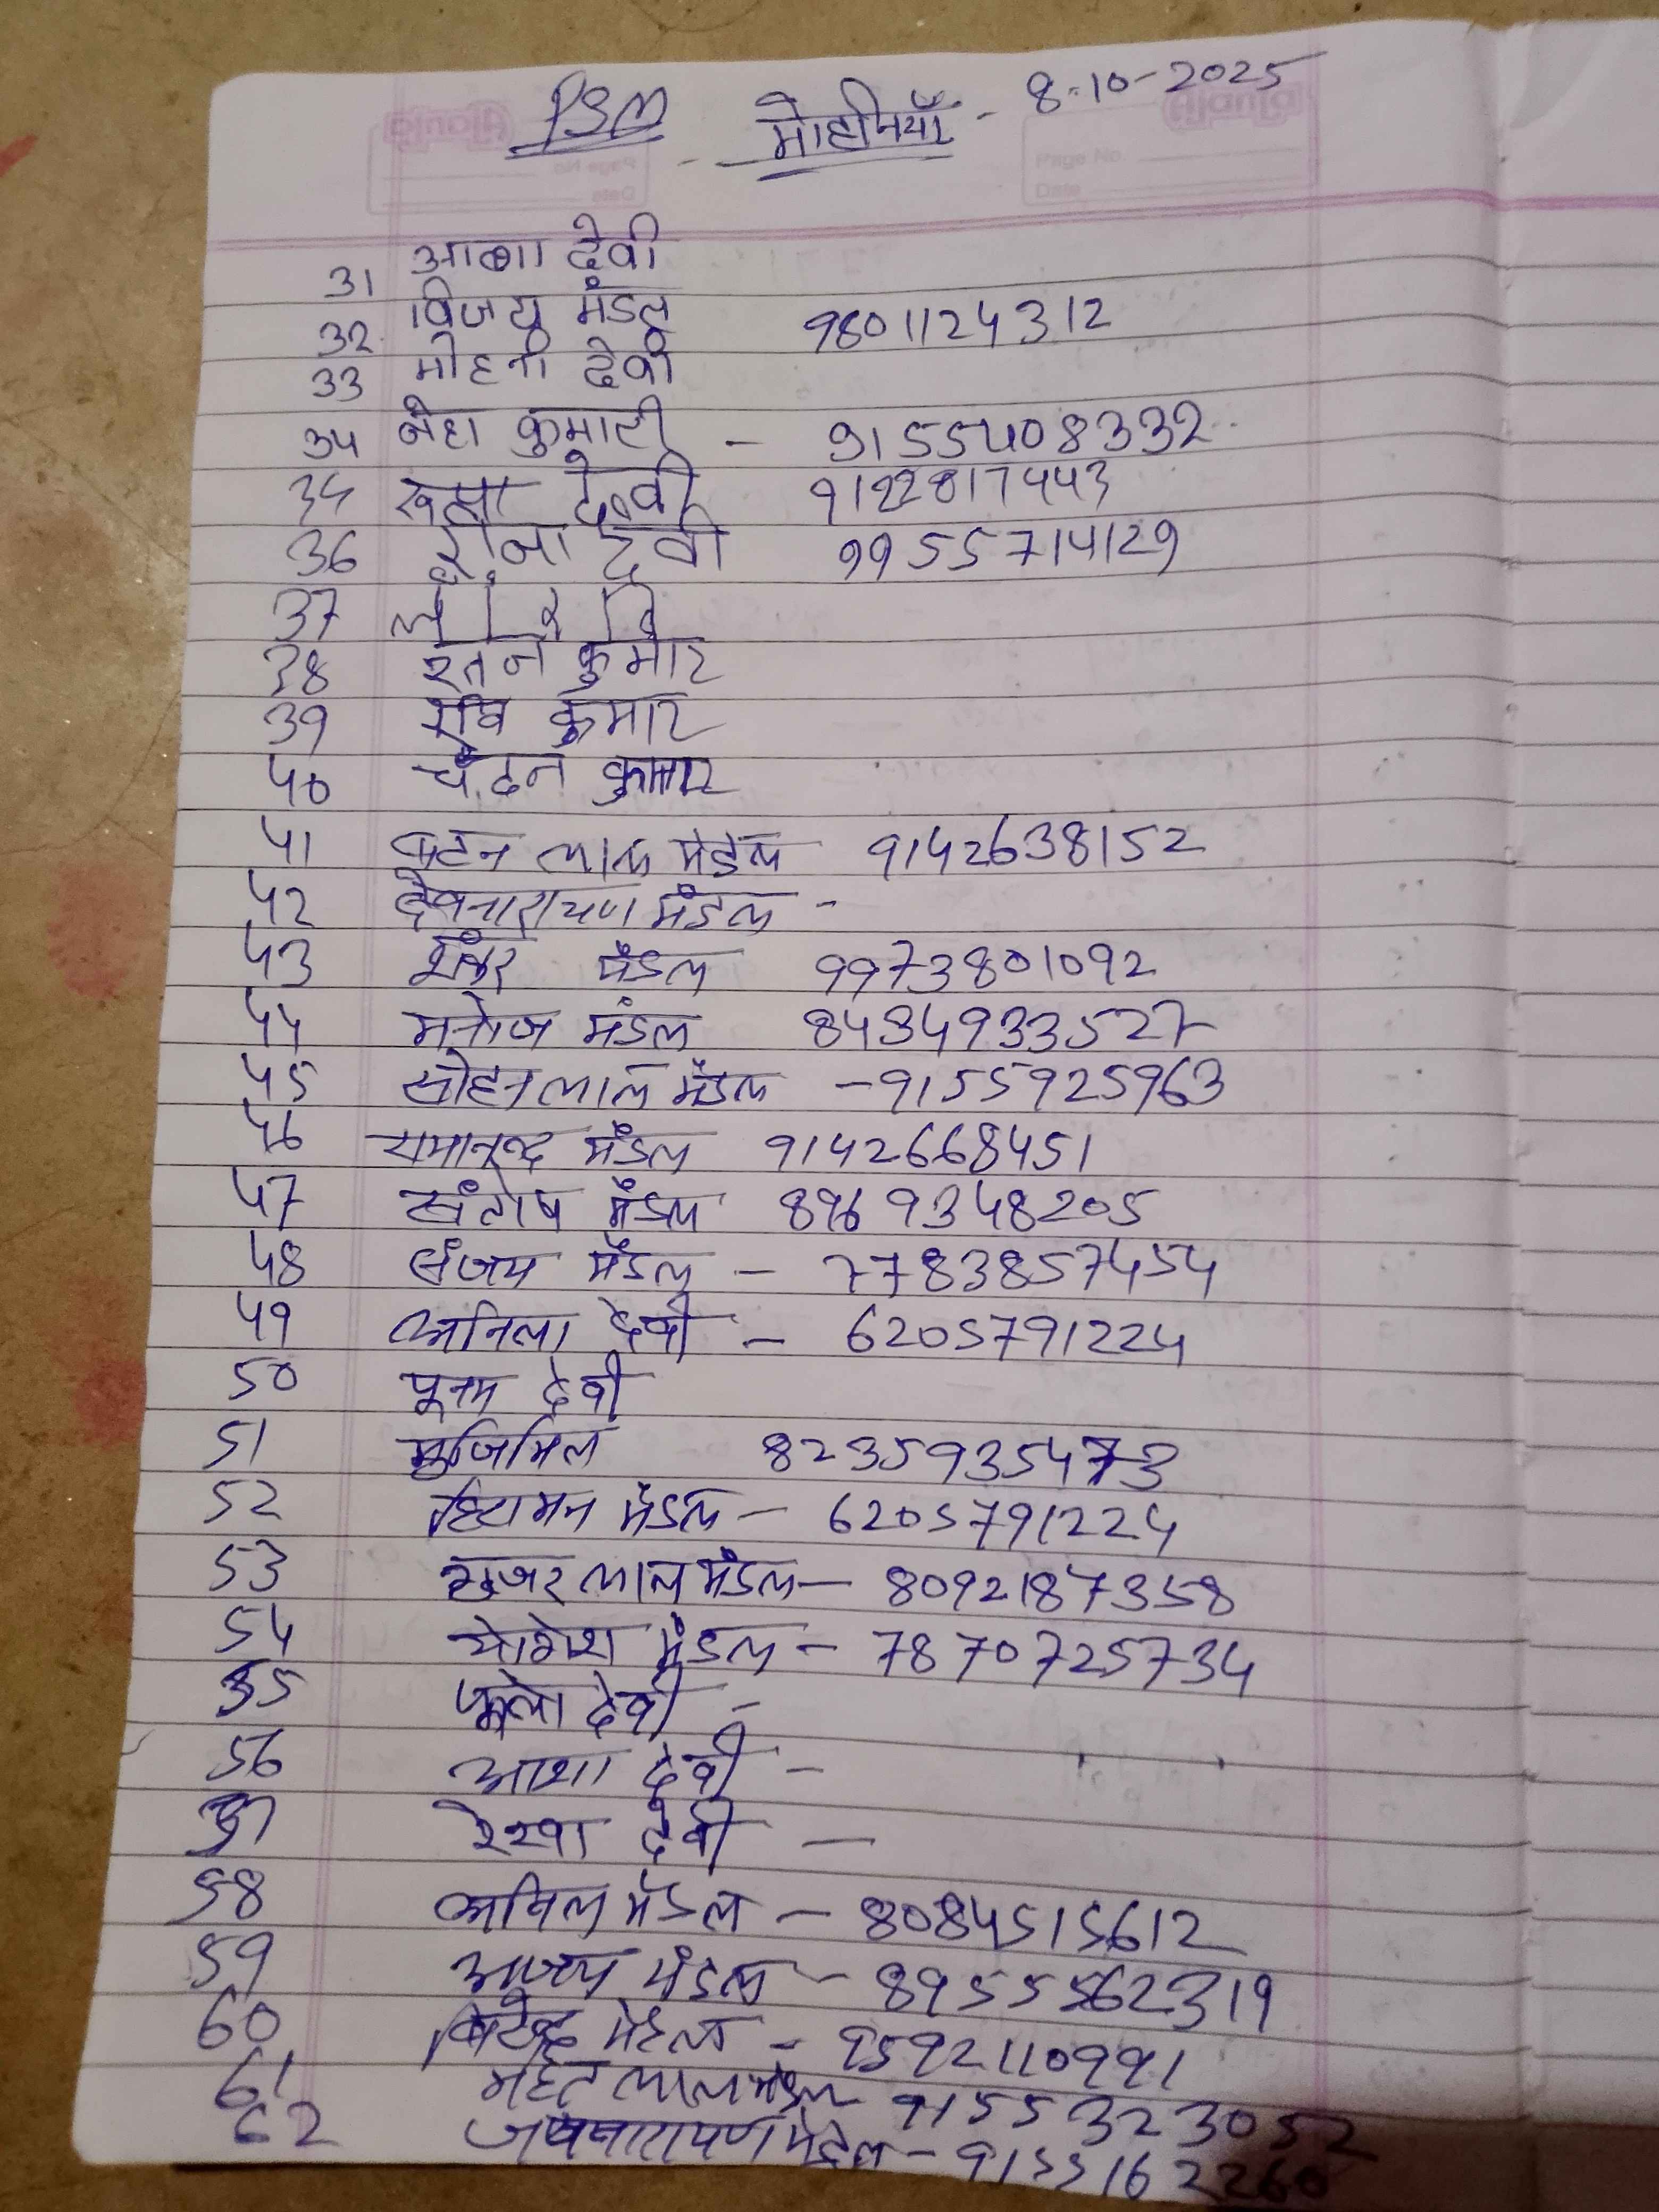 PSM मोहनियाँ - 8-10-2025
Ajanta
Page No
Date
31 आशा देवी
32 विजय मंडल 9801124312
33 मोहनी देवी
34 नेहा कुमारी - 9155408332
34 देवी 9122817443
36 देवी 9955714129
37
38 रतन कुमार
39 कुमार
40 चंदन कुमार
41 लाल मंडल 9142638152
42 देवनारायण मंडल -
43 शंकर मंडल 9973801092
44 मनोज मंडल 8434933527
45 सोहन लाल मंडल -9155925963
46 रामानन्द मंडल 9142668451
47 संतोष मंडल 8969348205
48 संजय मंडल - 7783857454
49 अनिला देवी - 6205791224
50 पूनम देवी
51 8235935473
52 मंडल - 6205791224
53 लाल मंडल - 8092187358
54 योगेश मंडल - 7870725734
55 फूलो देवी -
56 आशा देवी -
57 रेखा देवी -
58 अनिल मंडल - 8084515612
59 अजय मंडल - 8955562319
60 मंडल - 9592110991
61 लाल मंडल 9155323052
62 मंडल - 9155162260